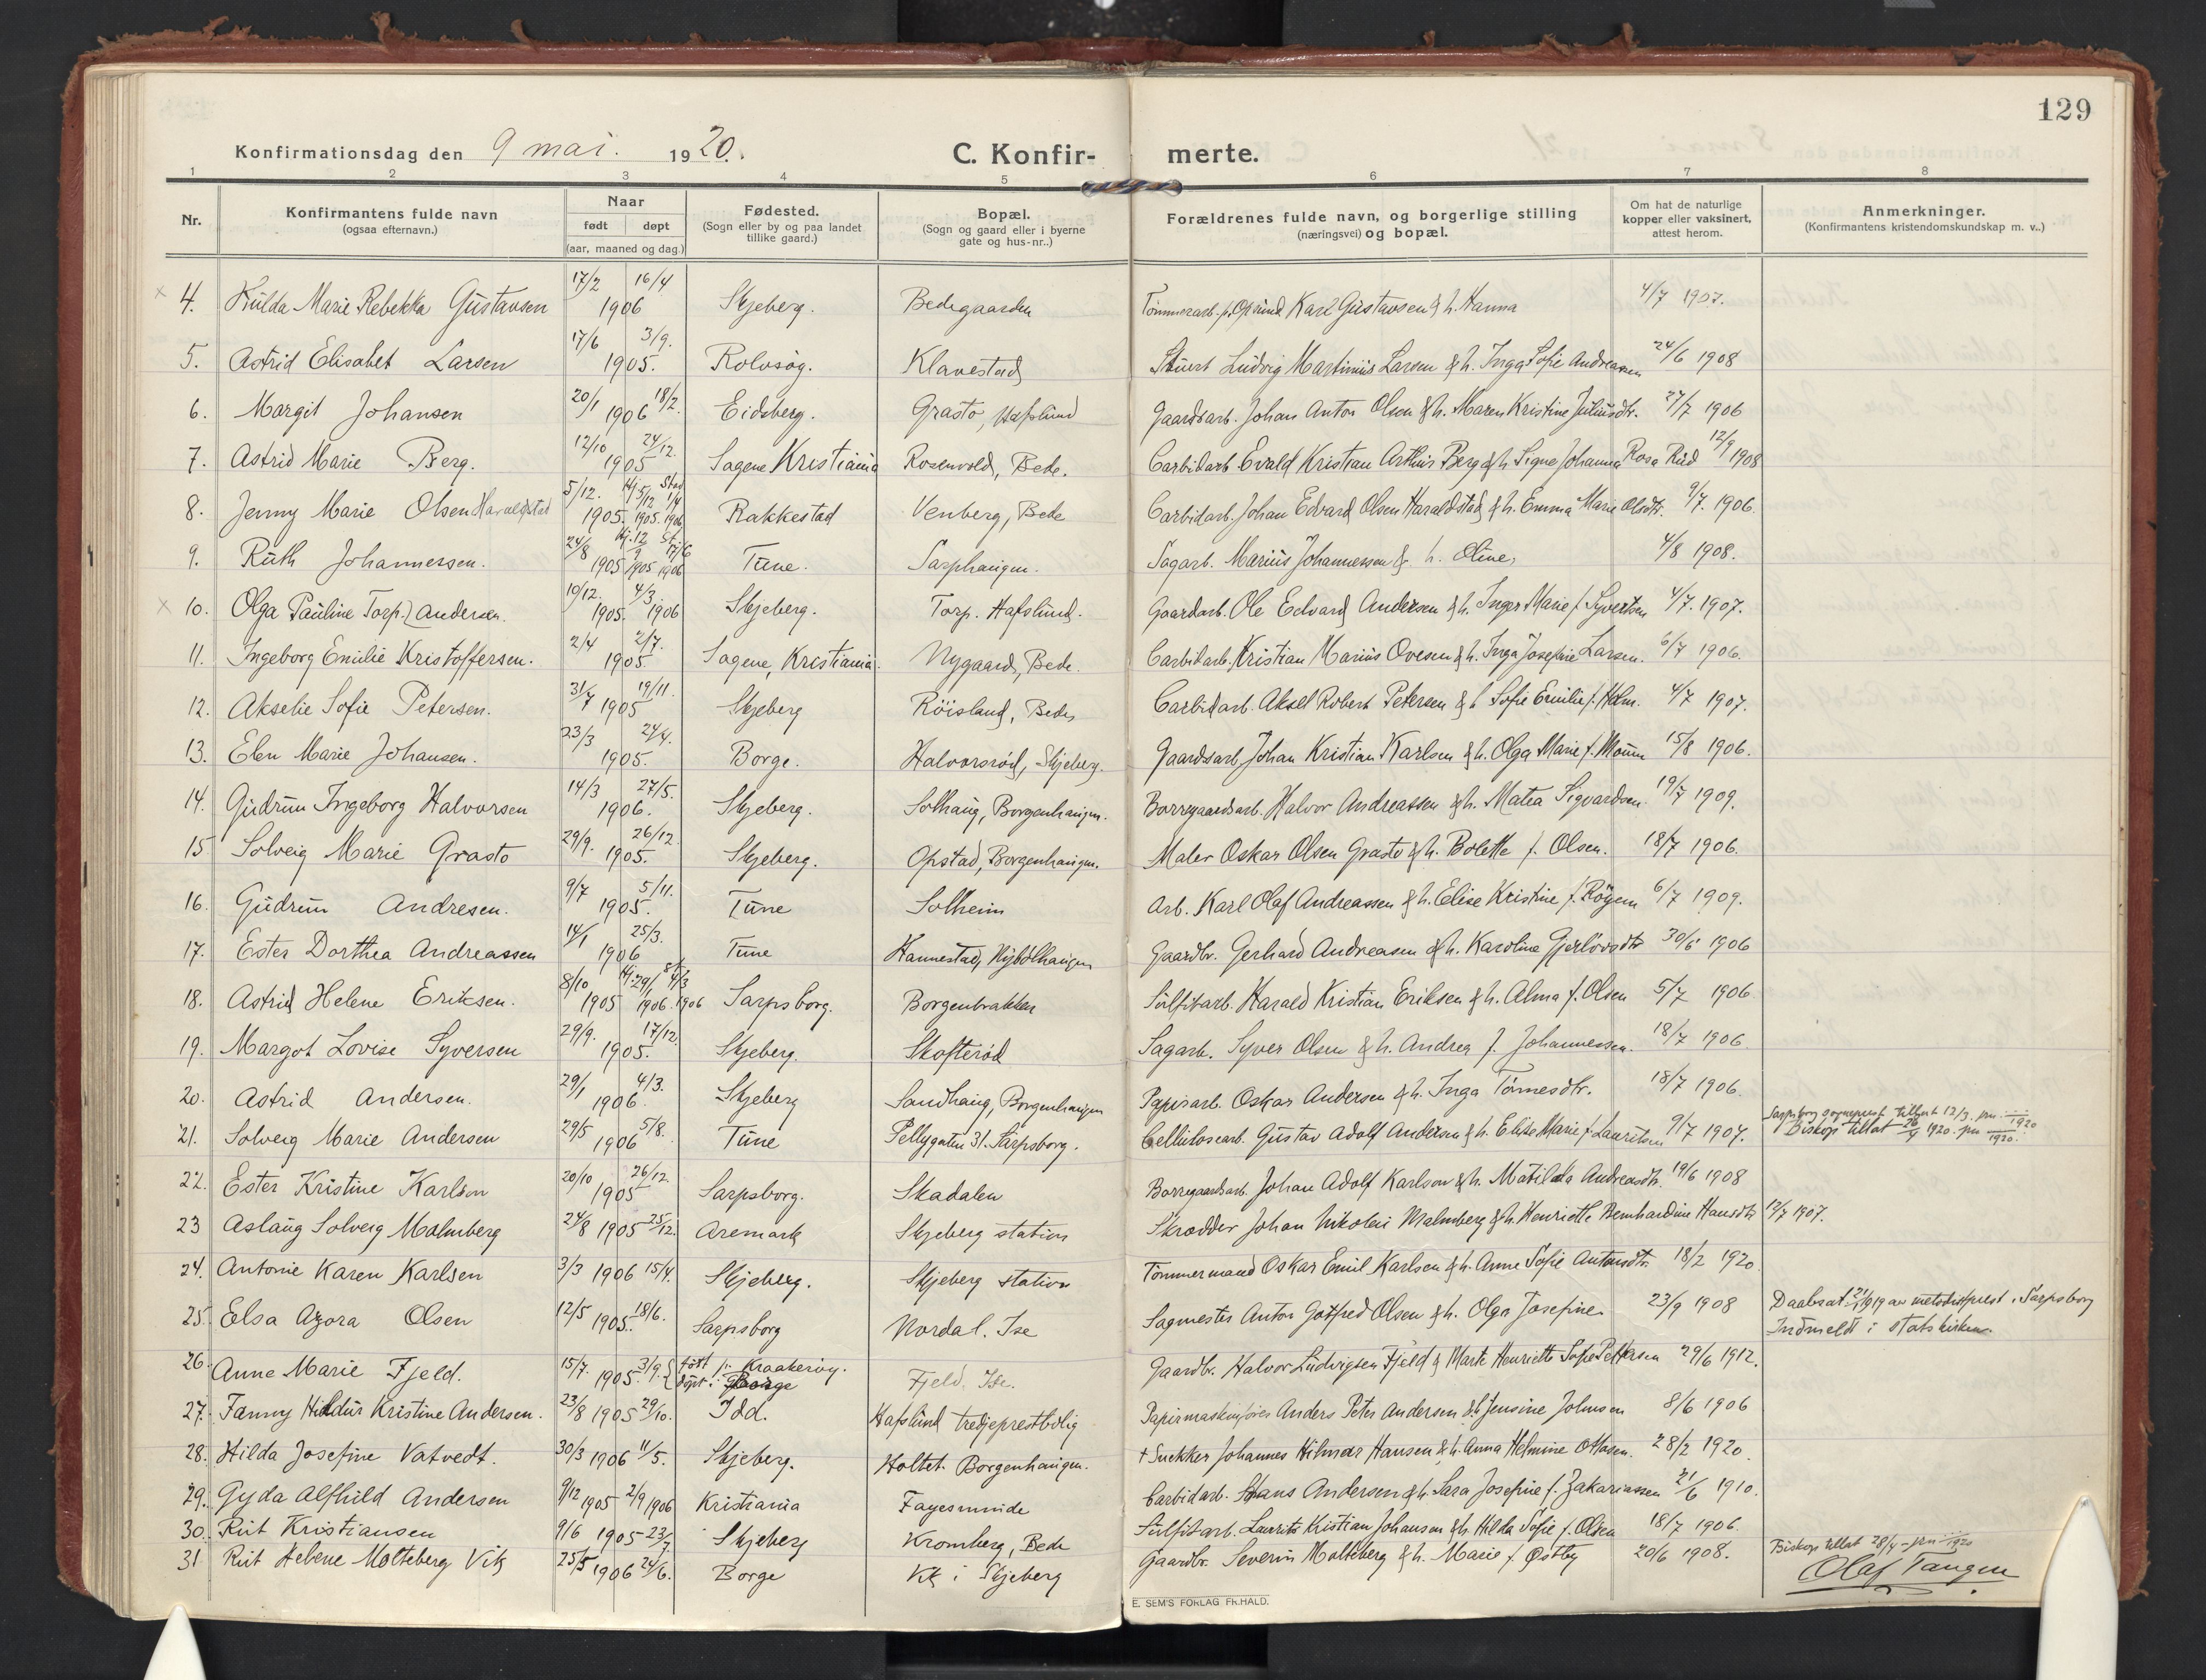 129
Konfirmationsdag den 9 mai. 1920. C. Konfir- merte.
1 2 3 4 5 6 7 8
Nr. Konfirmantens fulde navn (ogsaa efternavn.) Naar født døpt (aar, maaned og dag.) Fødested. (Sogn eller by og paa landet tillike gaard.) Bopæl. (Sogn og gaard eller i byerne gate og hus-nr..) Forældrenes fulde navn, og borgerlige stilling (næringsvei) og bopæl. Om hat de naturlige kopper eller vaksinert, attest herom. Anmerkninger. (Konfirmantens kristendomskundskap m. v..)
× 4. Hulda Marie Rebekka Gustavsen 17/2 16/4 1906 Skjeberg. Bedegaarden Tømmerarb. Karl Gustavsen & h. Hanna 4/7 1907.
5. Astrid Elisabet Larsen 17/6 3/9. 1905. Rolvsøg. Klavestad Stuert Ludvig Martinius Larsen & h. Inga Sofie Andreassen 24/6 1908
6. Margit Johansen 20/1 18/2. 1906 Eidsberg. Grasto, Hafslund Gaardsarb. Johan Anton Olsen & h. Maren Kristine Juliusdtr. 27/7 1906
7. Astrid Marie Berg. 12/10 24/12. 1905 Sagene Kristiania Rosenvold, Bede. Carbidarb. Evald Kristian Arthur Berg & h. Signe Johanna Rosa Rud 12/9 1908
8. Jenny Marie Olsen Haraldstad 5/12. 1905. Hj. 5/12 1905. Stad 1/4 1906 Rakkestad Venberg, Bede Carbidarb. Johan Edvard Olsen Haraldstad & h. Emma Marie Olsdtr. 9/7. 1906.
9. Ruth Johannessen. 24/8 1905 Hj. 12/9 1905 St. 17/6 1906 Tune. Sarphaugen. Sagarb. Marius Johannessen & h. Oline, 4/8 1908.
× 10. Olga Pauline Torp.) Andersen. 10/12. 1905. 4/3 1906 Skjeberg. Torp. Hafslund. Gaardarb. Ole Edvard Andersen & h. Inger Marie f. Syvertsen 4/7. 1907.
11. Ingeborg Emilie Kristoffersen. 2/4 2/7. 1905 Sagene, Kristiania. Nygaard, Bede. Carbidarb. Kristian Marius Ovesen & h. Inga Josefine Larsen. 6/7 1906.
12. Akselie Sofie Petersen. 31/7 19/11. 1905 Skjeberg Röisland, Bede, Carbidarb. Aksel Robert Petersen & h Sofie Emilie f. Holm. 4/7 1907.
13. Elen Marie Johansen. 23/3 24/4. 1905. Borge. Halvorsrød, Skjeberg. Gaardsarb. Johan Kristian Karlsen & h. Olga Marie f. Moum 15/8 1906.
14. Gudrun Ingeborg Halvorsen 14/3 27/5. 1906. Skjeberg. Solhaug, Borgenhaugen. Borregaardsarb. Halvor Andreassen & h. Matea Sigvardsen 19/7 1909.
15 Solveig Marie Grasto 29/9. 26/12 1905. Skjeberg. Opstad, Borgenhaugen. Maler Oskar Olsen Grasto & h. Bolette f. Olsen. 18/7 1906.
16. Gudrun Andresen. 9/7 5/11. 1905. Tune Solheim Arb. Karl Olaf Andreassen & h. Elise Kristine f. Röyem 6/7 1909.
17. Ester Dorthea Andreassen 14/1 25/3. 1906 Tune Hannestad, Nybölhaugen Gaardbr. Gerhard Andreasen & h. Karoline Gjerlövsdtr 30/6 1906
18. Astrid Helene Eriksen. 8/10 1905 Hj. 29/1 1906. St. 4/3 1906 Sarpsborg. Borgenbrakken Sulfitarb. Harald Kristian Eriksen & h. Alma f. Olsen 5/7 1906
19. Margot Lovise Syversen 29/9. 17/12. 1905. Skjeberg. Skofterød Sagarb. Syver Olsen & h. Andrea f. Johannessen. 18/7 1906.
20. Astrid Andersen. 29/1 4/3. 1906. Skjeberg Sandhaug, Borgenhaugen Papirarb. Oskar Andersen & h. Inga Tönnesdtr. 18/7 1906.
21. Solveig Marie Andersen 29/5 5/8. 1906 Tune Pellygaten 31. Sarpsborg. Cellulosearb. Gustav Adolf Andersen & h. Elise Marie f. Lauritsen 9/7 1907. Sarpsborg sogneprest tillat 12/3. jnr. 1920 Biskop tillat 26/4 1920. jnr 1920.
22. Ester Kristine Karlson 20/10 26/12. 1905 Sarpsborg. Skadalen Borregaardsarb. Johan Adolf Karlson & h. Matilda Andreasdtr. 19/6 1908
23 Aslaug Solveig Malmberg 24/8 1905 25/12. Aremark Skjeberg station Skrædder Johan Nikolai Malmberg & h. Henriette Bernhardine Hansdtr 12/7 1907.
24. Antonie Karen Karlsen 3/3 1906 15/4. Skjeberg. Skjeberg station Tömmermand Oskar Emil Karlsen & h. Anne Sofie Antonsdtr. 18/2 1920
25. Elsa Azora Olsen 12/5 1905. 18/6. Sarpsborg Nordal. Ise Sagmester Anton Gotfred Olsen & h. Olga Josefine. 23/9 1908 Daabsat. 21/1 1919 av metodistprest i Sarpsborg Indmeldt i statskirken.
26. Anne Marie Fjeld. 15/7. 1905. 3/9. { født i Kraakeröy. döpt i Borge Fjeld. Ise. Gaardbr. Halvor Ludvigsen Fjeld & Marte Henriette Sofie Pettersen 29/6 1912.
27. Fanny Hildur Kristine Andersen. 23/8 1905 29/10. Idd. Hafslund tredjeprestbolig Papirmaskinfører Anders Peter Andersen & h Jensine Johnsen 8/6 1906
28. Hilda Josefine Vatvedt. 30/3 1906 11/5. Skjeberg. Holtet. Borgenhaugen. + Snekker Johannes Hilmar Hansen & h. Anna Helmine Ottosen. 28/2 1920.
29. Gyda Alfhild Andersen 9/12 1905 2/9 1906 Kristiania Fagesmunde Carbidarb. Hans Andersen & h. Sara Josefine f. Zakariassen 21/6 1910.
30. Rut Kristiansen 9/6 1905 23/7 Skjeberg Kromberg, Bede Sulfitarb. Laurits Kristian Johansen & h. Hilda Sofie f. Olsen 18/7 1906.
31 Rut Helene Molteberg Vik 25/5 1906 24/6. Borge Vik i Skjeberg Gaardbr. Severin Molteberg & h. Marie f. Østby 20/6 1908. Biskop tillat 28/4 - jnr 1920
Olaf Tangen
E. SEM'S FORLAG FR.HALD.